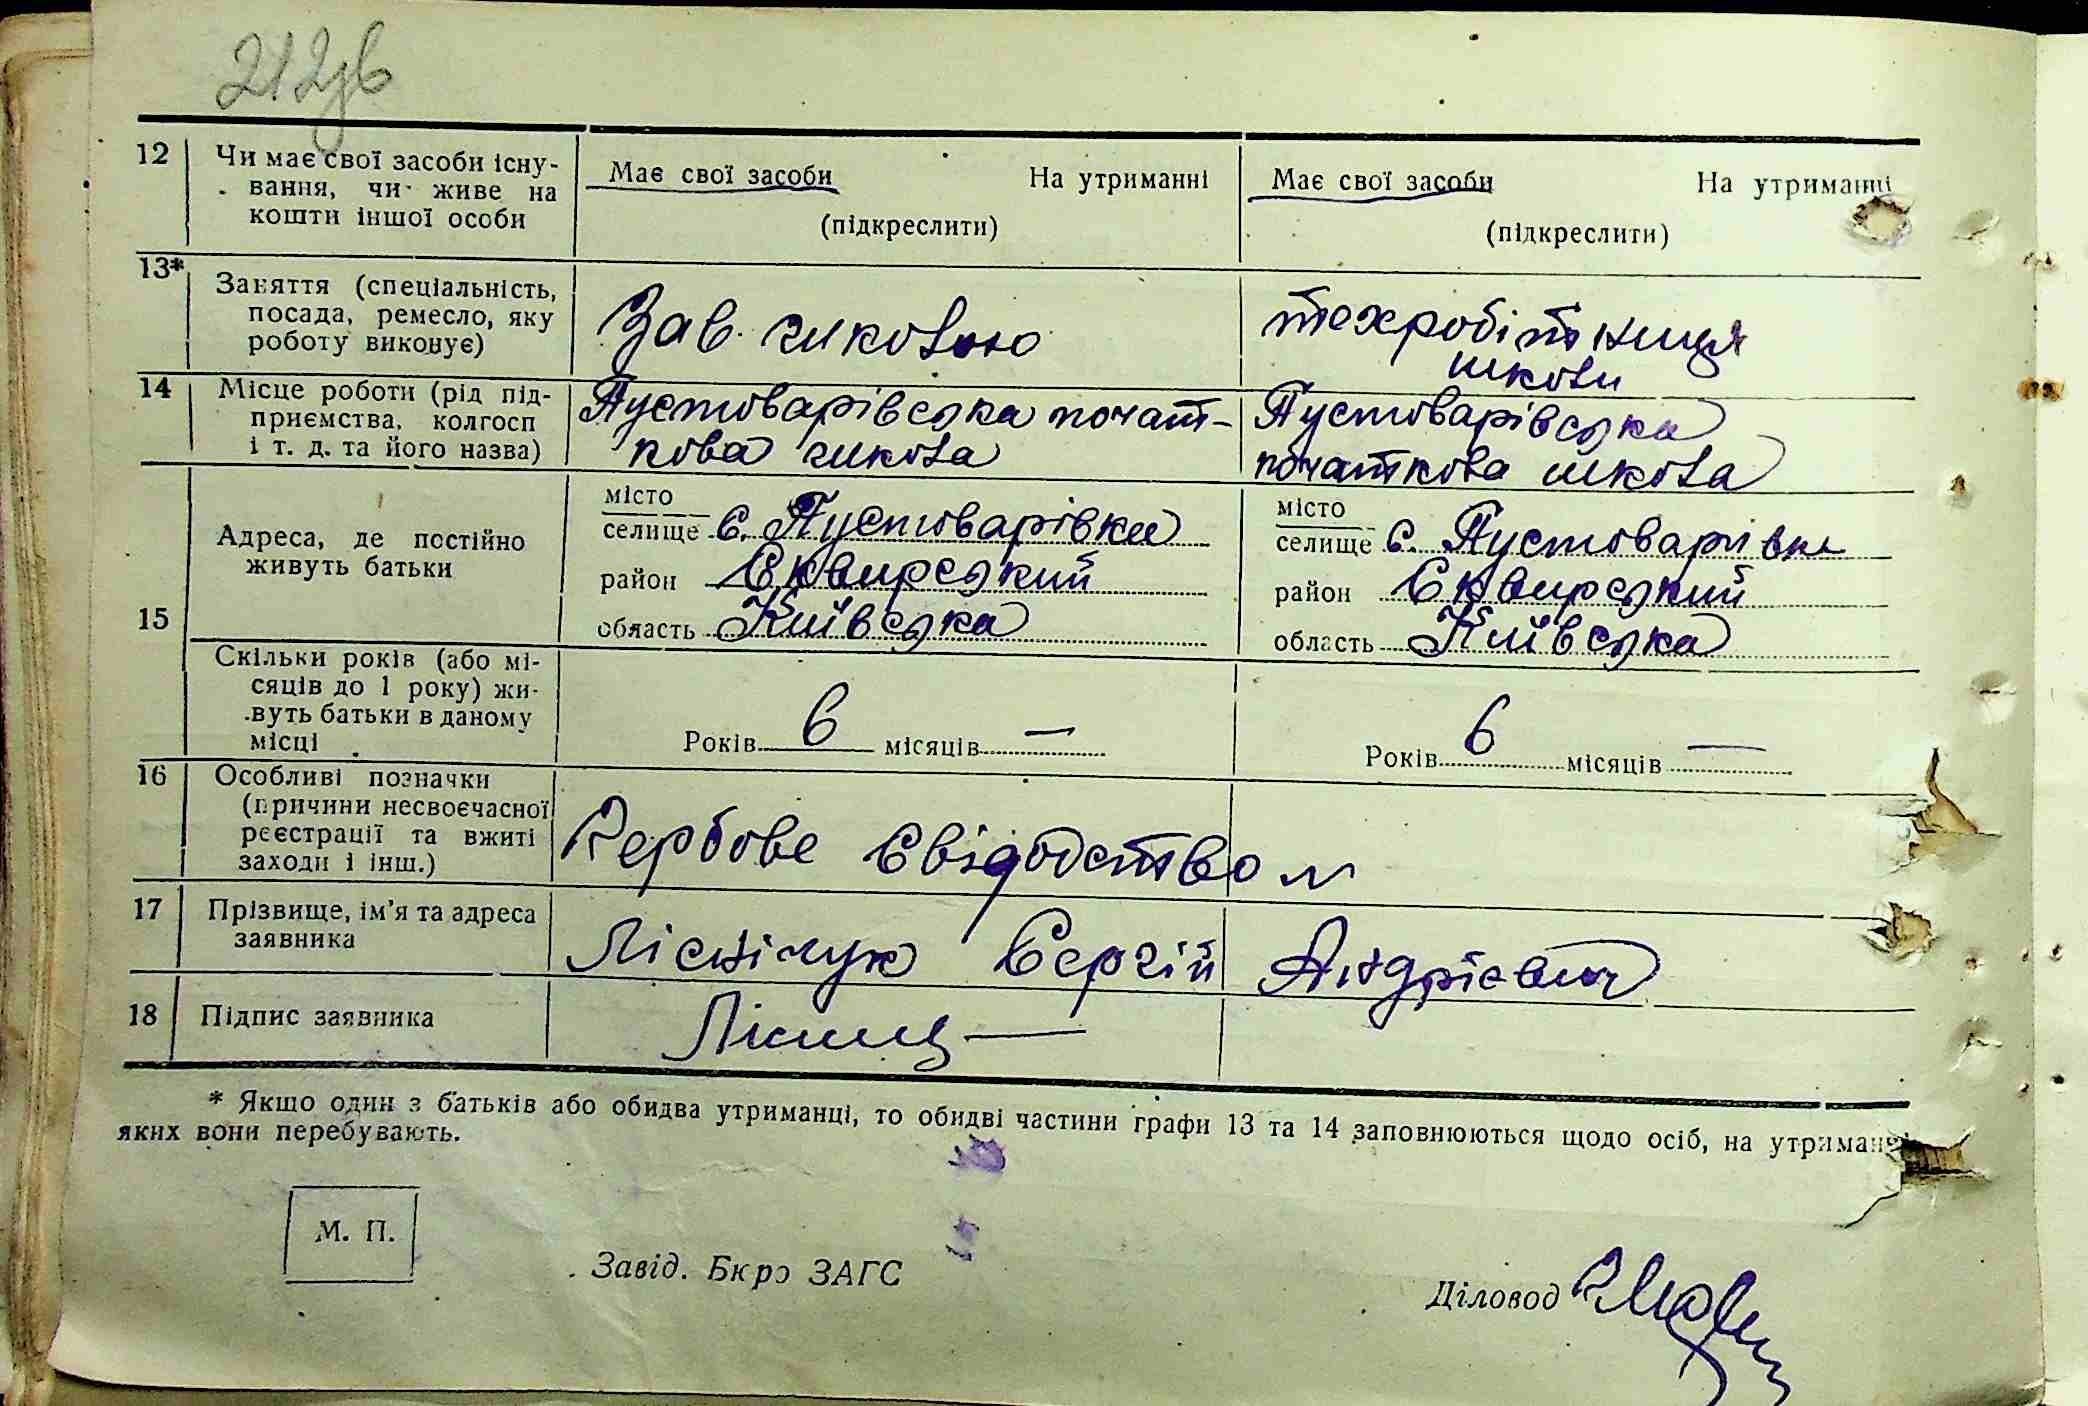 212зв
12 Чи має свої засоби існу- Має свої засоби На утриманні Має свої засоби На утриманні
вання, чи живе на
кошти іншої особи (підкреслити) (підкреслити)
13* Заняття (спеціальність, Зав. школою техробітниця
посада, ремесло, яку школи
роботу виконує)
14 Місце роботи (рід під- Пустоварівська почат- Пустоварівська
приємства, колгосп кова школа початкова школа
і т. д. та його назва)
15 Адреса, де постійно місто місто
живуть батьки селище с. Пустоварівка селище с. Пустоварівка
район Сквирський район Сквирський
область Київська область Київська
Скільки років (або мі-
сяців до 1 року) жи-
вуть батьки в даному
місці Років 6 місяців — Років 6 місяців —
16 Особливі позначки
(причини несвоєчасної
реєстрації та вжиті Гербове свідодство №
заходи і інш.)
17 Прізвище, ім'я та адреса Лісничук Сергій Андрієвич
заявника
18 Підпис заявника
* Якщо один з батьків або обидва утриманці, то обидві частини графи 13 та 14 заповнюються щодо осіб, на утриманні
яких вони перебувають.
М. П.
Завід. Бюро ЗАГС
Діловод